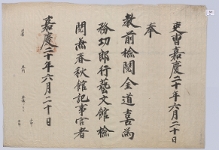 吏曹嘉慶二十年六月二十日
奉
敎前檢閱金道喜爲
務功郞行藝文館檢
閱兼春秋館記事官者
嘉慶二十年六月二十日